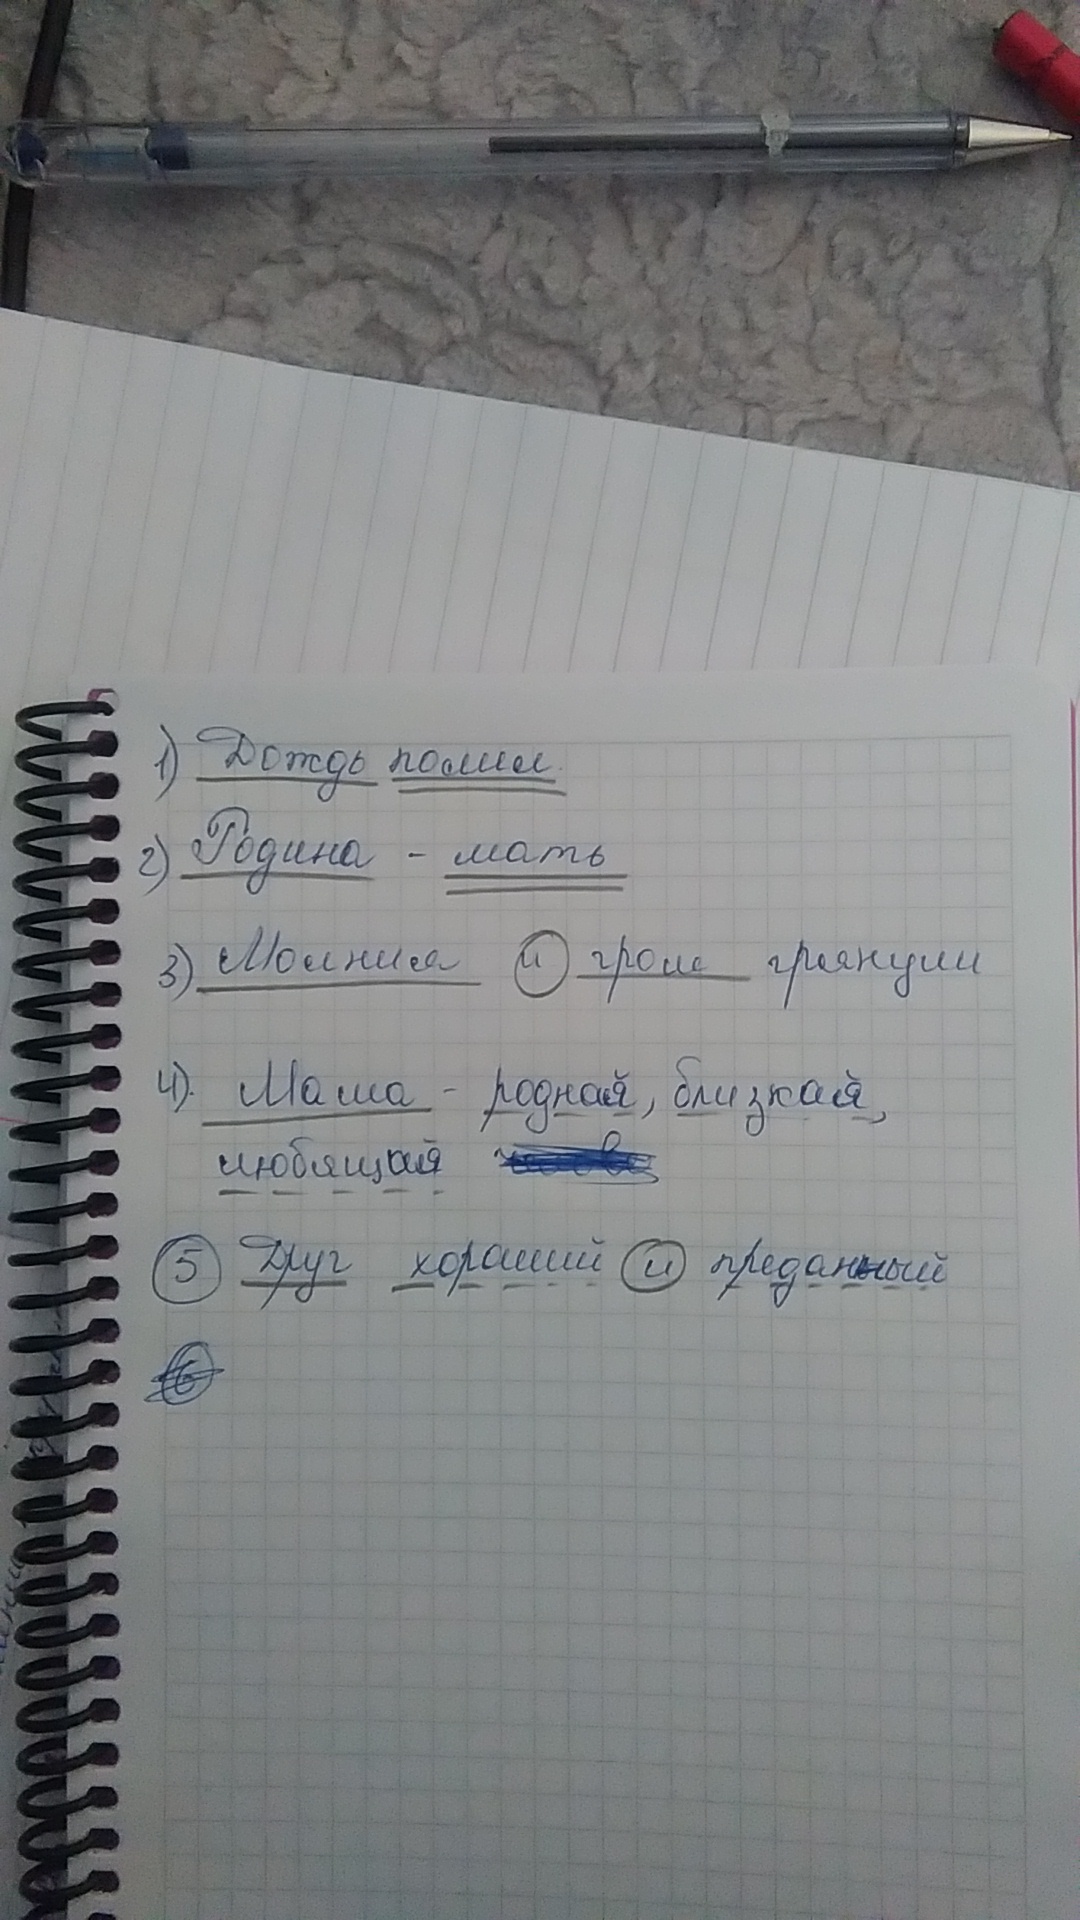 1) Дождь полил.
2) Родина - мать
3) Молния и гром грянули
4). Мама - родная, близкая,
любящая
5 Друг хороший и преданный
6